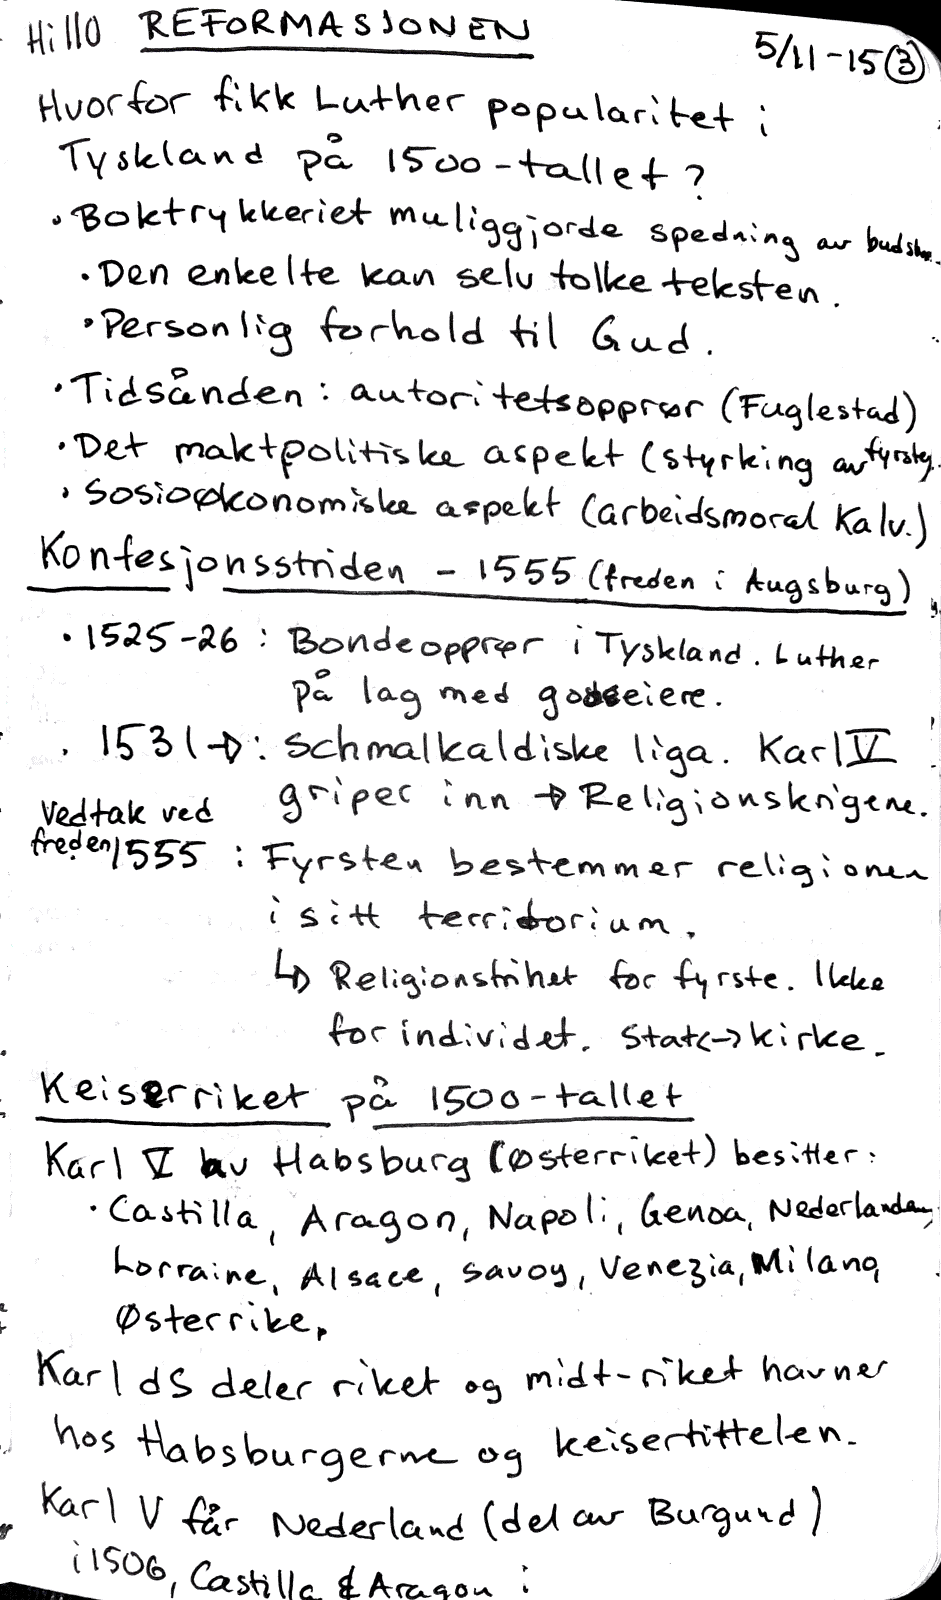 Hi110 REFORMASJONEN
5/11-15 (3)
Hvorfor fikk Luther popularitet i
Tyskland på 1500-tallet?
• Boktrykkeriet muliggjorde spedning av budsk..
• Den enkelte kan selv tolke teksten.
• Personlig forhold til Gud.
• Tidsånden: autoritetsopprør (Fuglestad)
• Det maktpolitiske aspekt (styrking av
• Sosioøkonomiske aspekt (arbeidsmoral Kalv.)
Konfesjonsstriden - 1555 (freden i Augsburg)
• 1525-26 : Bondeopprør i Tyskland. Luther
på lag med godseiere.
. 1531→: Schmalkaldiske liga. Karl V
griper inn → Religionskrigene.
Vedtak ved
freden 1555 : Fyrsten bestemmer religionen
i sitt territorium.
↳ Religionsfrihet for fyrste. Ikke
for individet. Stat<->kirke.
Keiserriket på 1500-tallet
Karl V av Habsburg (Østerriket) besitter:
• Castilla, Aragon, Napoli, Genoa, Nederlanden,
Lorraine, Alsace, Savoy, Venezia, Milano,
Østerrike,
Karl dS deler riket og midt-riket havner
hos Habsburgerne og keisertittelen.
Karl V får Nederland (del av Burgund)
i 1506, Castilla & Aragon i